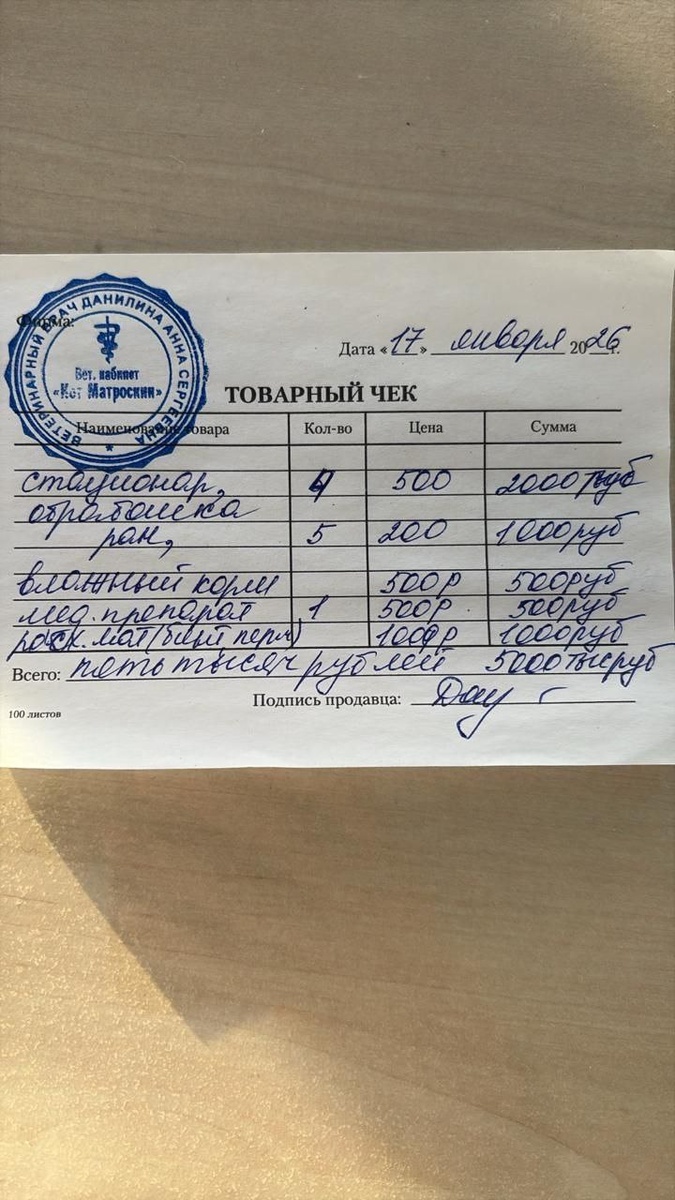 Фирма:
ВЕТЕРИНАРНЫЙ ВРАЧ ДАНИЛИНА АННА СЕРГЕЕВНА
Вет. кабинет
«Кот Матроскин»
Дата «17» января 2026 г.
ТОВАРНЫЙ ЧЕК
Наименование товара Кол-во Цена Сумма
стационар, 4 500 2000 руб
обработка
ран, 5 200 1000руб
влажный корм 500р 500руб
мед. препарат 1 500р. 500руб
расх. мат (бинт, перч) 1000р 1000руб
Всего: пять тысяч рублей 5000тыс руб
Подпись продавца:
100 листов